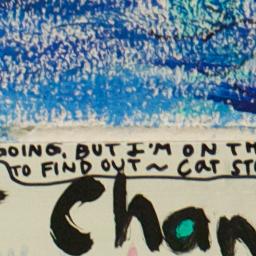 OING, BUT I'M ON TH
TO FIND OUT ~ CAT STE
Chan